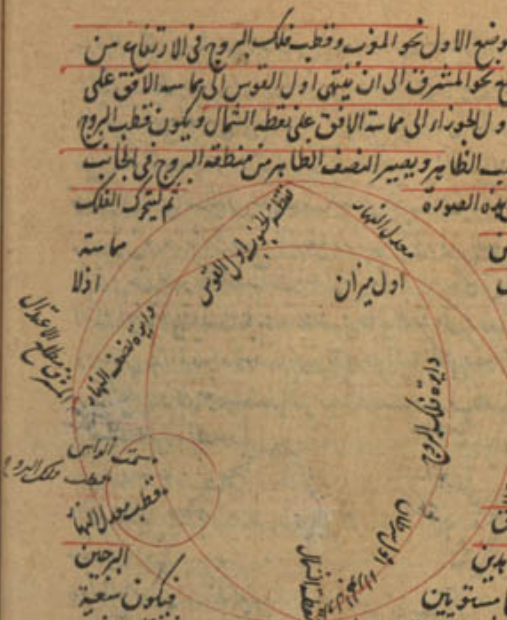 وضع الاول نحو المغرب وقطب فلك البروج فى الارتفاع من
نحو المشرق الى ان ينتهى اول القوس الى مماسة الافق على
ول الجوزاء الى مماسة الافق على نقطة الشمال ويكون قطب البروج
الظاهر ويصير النصف الظاهر من منطقة البروج فى الجانب
هذه الصورة
ثم يتحرك الفلك
مماسة
اولا
معدل النهار
نقطة الجنوب اول القوس
اول ميزان
دايرة نصف النهار
المشرق مطلع الاعتدال
دايرة فلك البروج
سمت الراس
قطب فلك البروج
قطب معدل النهار
اول سرطان
اول الجوزاء
نقطة الشمال
البرجين
فيكون سعة
مستويين